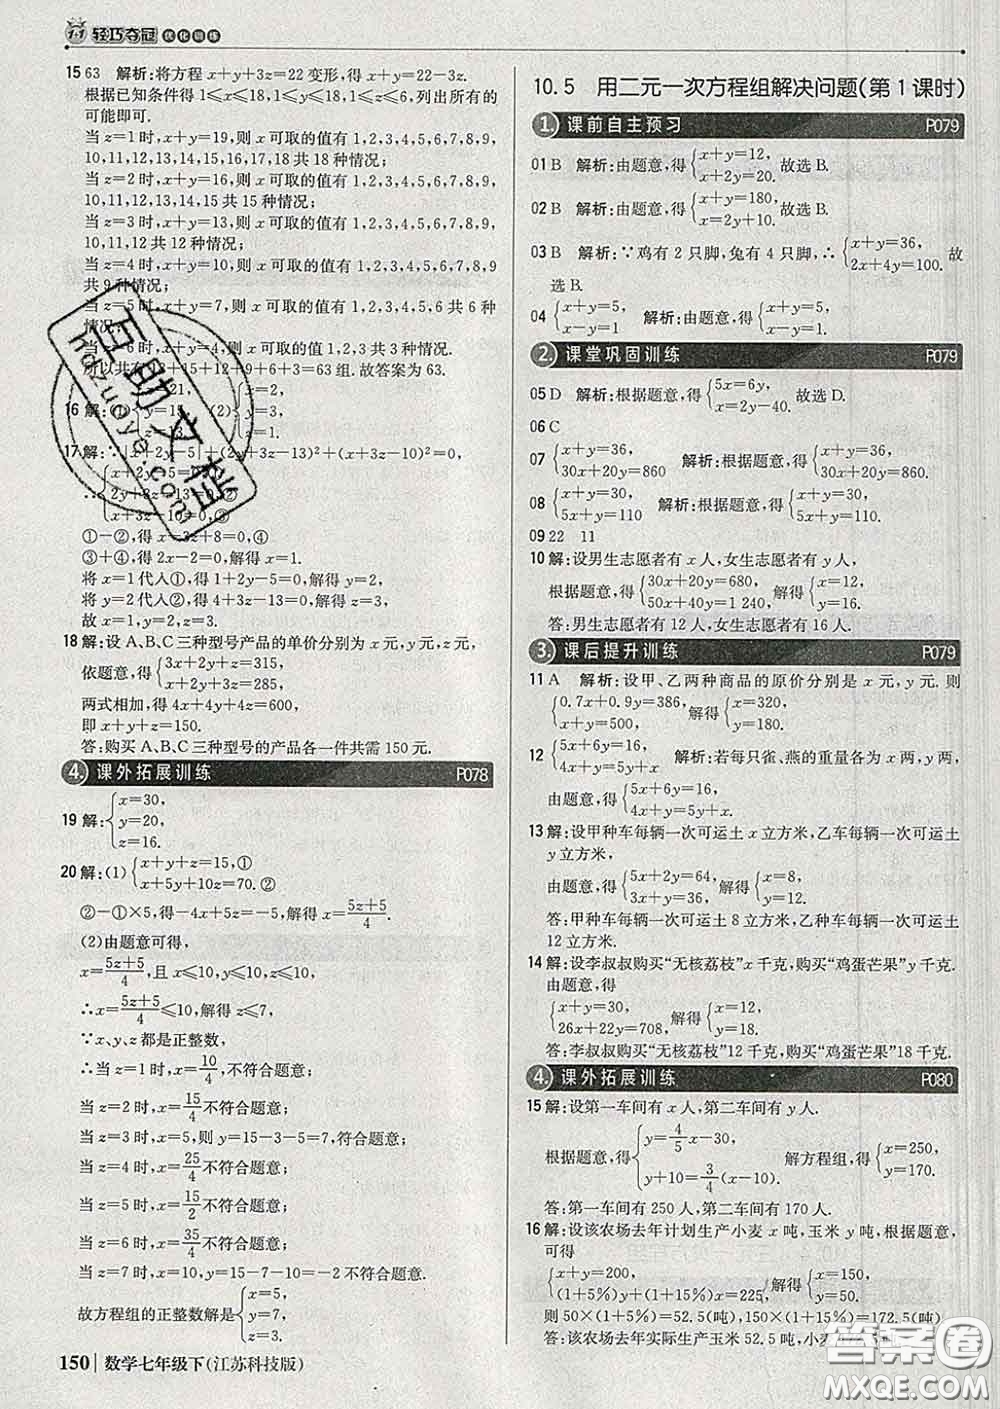 1+1 轻巧夺冠 优化训练
15 63 解析:将方程 x+y+3z=22 变形,得 x+y=22-3z.
根据已知条件得 1≤x≤18,1≤y≤18,1≤z≤6,列出所有的
可能即可.
当 z=1 时,x+y=19,则 x 可取的值有 1,2,3,4,5,6,7,8,9,
10,11,12,13,14,15,16,17,18 共 18 种情况;
当 z=2 时,x+y=16,则 x 可取的值有 1,2,3,4,5,6,7,8,9,
10,11,12,13,14,15 共 15 种情况;
当 z=3 时,x+y=13,则 x 可取的值有 1,2,3,4,5,6,7,8,9,
10,11,12 共 12 种情况;
当 z=4 时,x+y=10,则 x 可取的值有 1,2,3,4,5,6,7,8,9
共 9 种情况;
当 z=5 时,x+y=7,则 x 可取的值有 1,2,3,4,5,6 共 6 种
情况;
当 z=6 时,x+y=4,则 x 可取的值有 1,2,3 共 3 种情况.
所以共有 18+15+12+9+6+3=63 组.故答案为 63.
16 解:(1) 21, y=15, z=13. (2) y=3, z=1.
17 解:∵|x+2y-5|+(2y+3z-13)²+(x+3z-10)²=0,
∴{x+2y-5=0,① 2y+3z-13=0,② x+3z-10=0,③
①-②,得 x-3z+8=0,④
③+④,得 2x-2=0,解得 x=1.
将 x=1 代入①,得 1+2y-5=0,解得 y=2,
将 y=2 代入②,得 4+3z-13=0,解得 z=3,
故 x=1,y=2,z=3.
18 解:设 A、B、C 三种型号产品的单价分别为 x 元,y 元,z 元,
依题意,得{3x+2y+z=315, x+2y+3z=285,
两式相加,得 4x+4y+4z=600,
即 x+y+z=150.
答:购买 A、B、C 三种型号的产品各一件共需 150 元.
4. 课外拓展训练 P078
19 解:{x=30, y=20, z=16.
20 解:(1){x+y+z=15,① x+5y+10z=70.②
②-①×5,得-4x+5z=-5,解得 x=(5z+5)/4.
(2)由题意可得,
x=(5z+5)/4,且 x≤10,y≤10,z≤10,
∴x=(5z+5)/4≤10,解得 z≤7,
∵x、y、z 都是正整数,
∴当 z=1 时,x=10/4,不符合题意;
当 z=2 时,x=15/4 不符合题意;
当 z=3 时,x=5,则 y=15-3-5=7,符合题意;
当 z=4 时,x=25/4 不符合题意;
当 z=5 时,x=30/4 不符合题意;
当 z=6 时,x=35/4 不符合题意;
当 z=7 时,x=10,y=15-7-10=-2 不符合题意.
故方程组的正整数解是{x=5, y=7, z=3.
150 数学七年级下(江苏科技版)
10.5 用二元一次方程组解决问题(第 1 课时)
1. 课前自主预习 P079
01 B 解析:由题意,得{x+y=12, x+2y=20. 故选 B.
02 B 解析:由题意,得{x+y=180, x=2y+10. 故选 B.
03 B 解析:∵鸡有 2 只脚,兔有 4 只脚,∴{x+y=36, 2x+4y=100. 故
选 B.
04 {x+y=5, x-y=1 解析:由题意,得{x+y=5, x-y=1.
2. 课堂巩固训练 P079
05 D 解析:根据题意,得{5x=6y, x=2y-40. 故选 D.
06 C
07 {x+y=36, 30x+20y=860 解析:根据题意,得{x+y=36, 30x+20y=860.
08 {x+y=30, 5x+y=110 解析:根据题意,得{x+y=30, 5x+y=110.
09 22 11
10 解:设男生志愿者有 x 人,女生志愿者有 y 人,
根据题意,得{30x+20y=680, 50x+40y=1 240, 解得{x=12, y=16.
答:男生志愿者有 12 人,女生志愿者有 16 人.
3. 课后提升训练 P079
11 A 解析:设甲、乙两种商品的原价分别是 x 元,y 元.则
{0.7x+0.9y=386, x+y=500, 解得{x=320, y=180.
12 {5x+6y=16, 4x+y=5y+x 解析:若每只雀、燕的重量各为 x 两,y 两,
由题意,得{5x+6y=16, 4x+y=5y+x.
13 解:设甲种车每辆一次可运土 x 立方米,乙车每辆一次可运土
y 立方米,
由题意,得{5x+2y=64, 3x+y=36, 解得{x=8, y=12.
答:甲种车每辆一次可运土 8 立方米,乙种车每辆一次可运土
12 立方米.
14 解:设李叔叔购买“无核荔枝”x 千克,购买“鸡蛋芒果”y 千克.
由题意,得
{x+y=30, 26x+22y=708, 解得{x=12, y=18.
答:李叔叔购买“无核荔枝”12 千克,购买“鸡蛋芒果”18 千克.
4. 课外拓展训练 P080
15 解:设第一车间有 x 人,第二车间有 y 人.
根据题意,得{y=4/5x-30, y+10=3/4(x-10). 解方程组,得{x=250, y=170.
答:第一车间有 250 人,第二车间有 170 人.
16 解:设该农场去年计划生产小麦 x 吨,玉米 y 吨,根据题意,
可得
{x+y=200, (1+5%)x+(1+15%)y=225, 解得{x=150, y=50.
则 50×(1+5%)=52.5(吨),150×(1+15%)=172.5(吨)
答:该农场去年实际生产玉米 52.5 吨,小麦
互助文档
hdzuoye.com
答案圈
MXQE.COM